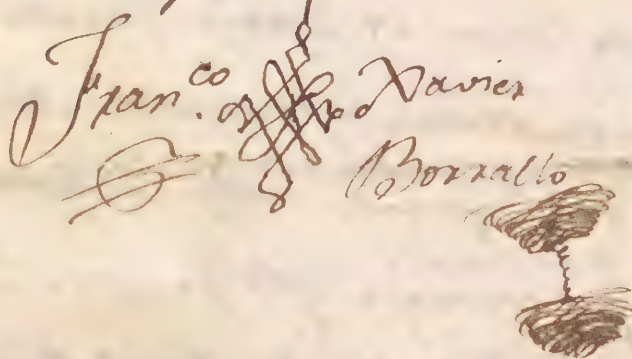 Fran.co Xavier
Borrallo